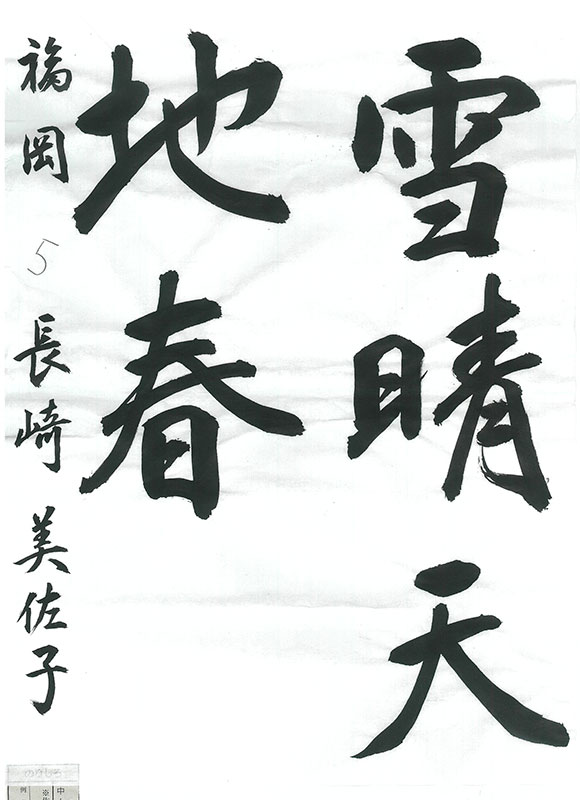 雪晴天
地春
福岡 5 長崎 美佐子